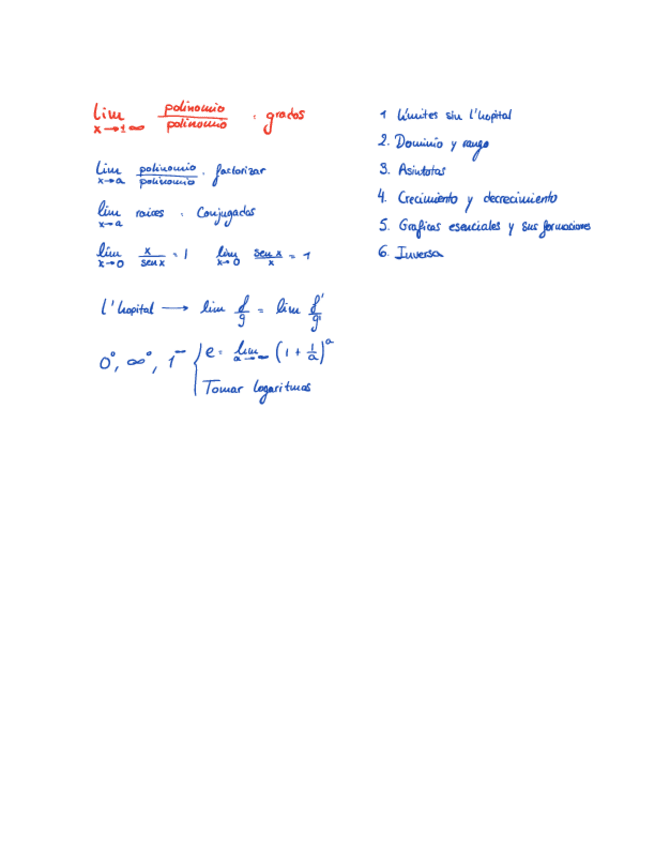 lim x→±∞ polinomio/polinomio : grados
lim x→a polinomio/polinomio : factorizar
lim x→a raices : Conjugados
lim x→0 x/sen x = 1 lim x→0 sen x/x = 1
l'hopital → lim f/g = lim f'/g'
0⁰, ∞⁰, 1^∞ { e = lim a→∞ (1 + 1/a)^a
Tomar logaritmos
1 Límites sin l'hopital
2. Dominio y rango
3. Asintotas
4. Crecimiento y decrecimiento
5. Graficas esenciales y sus formaciones
6. Inversa